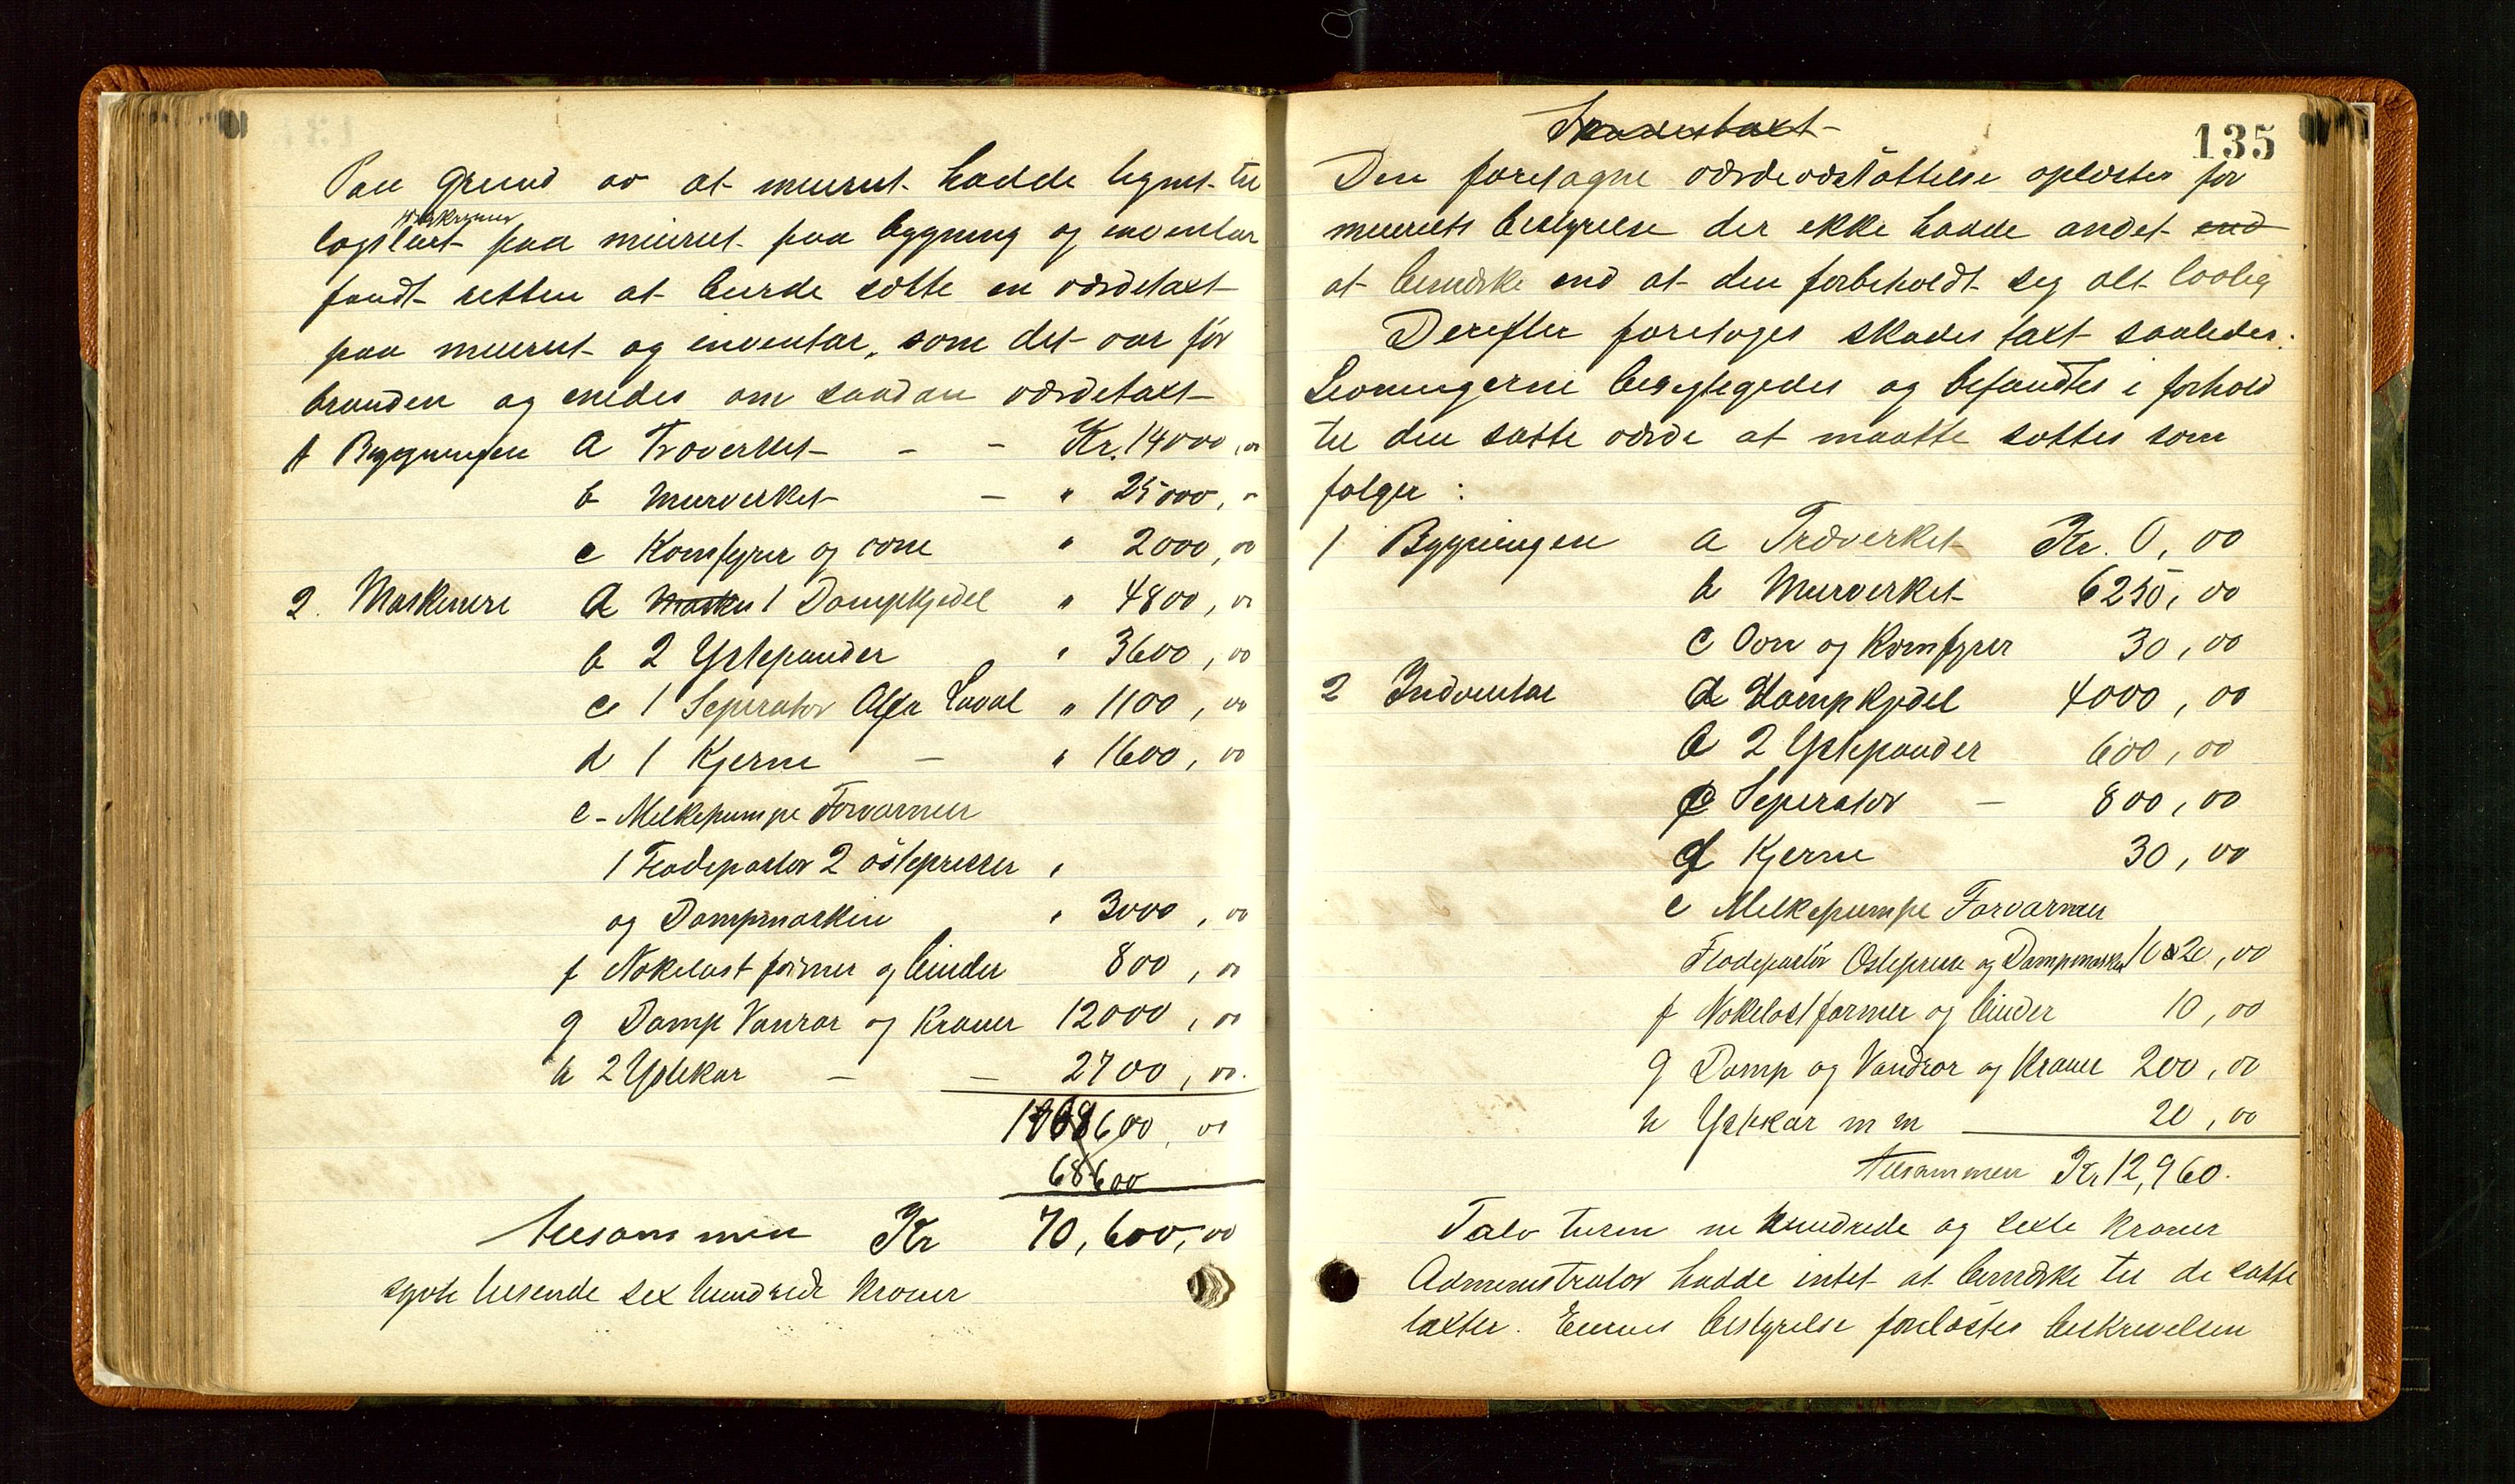 Paa Grund av at meieriet hadde tegnet til
70 kroner
lagtlaat paa meieriet paa bygning og inventar
fandt retten at burde sætte en værdetaxt
paa meieriet og inventar, som det var før
branden og enedes om saadan værdetaxt
1 Byggningen a Træverket - - Kr. 14000,00
b Murverket - " 25000,-
c Komfyrer og ovne " 2000,00
2. Maskineri a Maski 1 Dampkjedel " 4800,00
b 2 Ystepander " 3600,00
c 1 Seperator Alfa Laval " 1100,00
d 1 Kjerne - " 1600,00
e - Melkepumpe Forvarmer
1 Flødepastør 2 ostepresser "
og Dampmaskin " 3000,00
f Nøkelost former og binder 800,00
g Damp Vanrør og Kraner 12000,00
h 2 Ystekar - - 2700,00.
68600,00
68600
tilsammen Kr 70,600,00
sytti tusende sex hundrede kroner
135
Skadestaxt -
Den foretagne værdeværdsættelse oplæstes for
meieriets bestyrelse der ikke hadde andet end
at bemærke end at den forbeholdt seg alt lovlig
Derefter foretoges skades taxt saaledes:
Levningerne besigtigedes og befandtes i forhold
til den satte værdi at maatte sættes som
følger:
1 Bygningen a Træverket Kr. 0,00
b Murverket 6250,00
c Ovn og Komfyrer 30,00
2 Indventar a Dampkjedel 4000,00
b 2 Ystepander 600,00
c Seperator - 800,00
d Kjerne 30,00
e Melkepumpe Forvarmer
Flødepastør Ostepresse og Dampmaskin 1020,00
f Nøkelostformer og binder 10,00
g Damp og Vandrør og Kraner 200,00
h Ystekar m m 20,00
tilsammen Kr. 12,960.
Tolv tusen ni hundrede og sexti kroner
Administrator hadde intet at bemærke til de satte
taxter. Eiernes bestyrelse forelæstes beskrivelsen